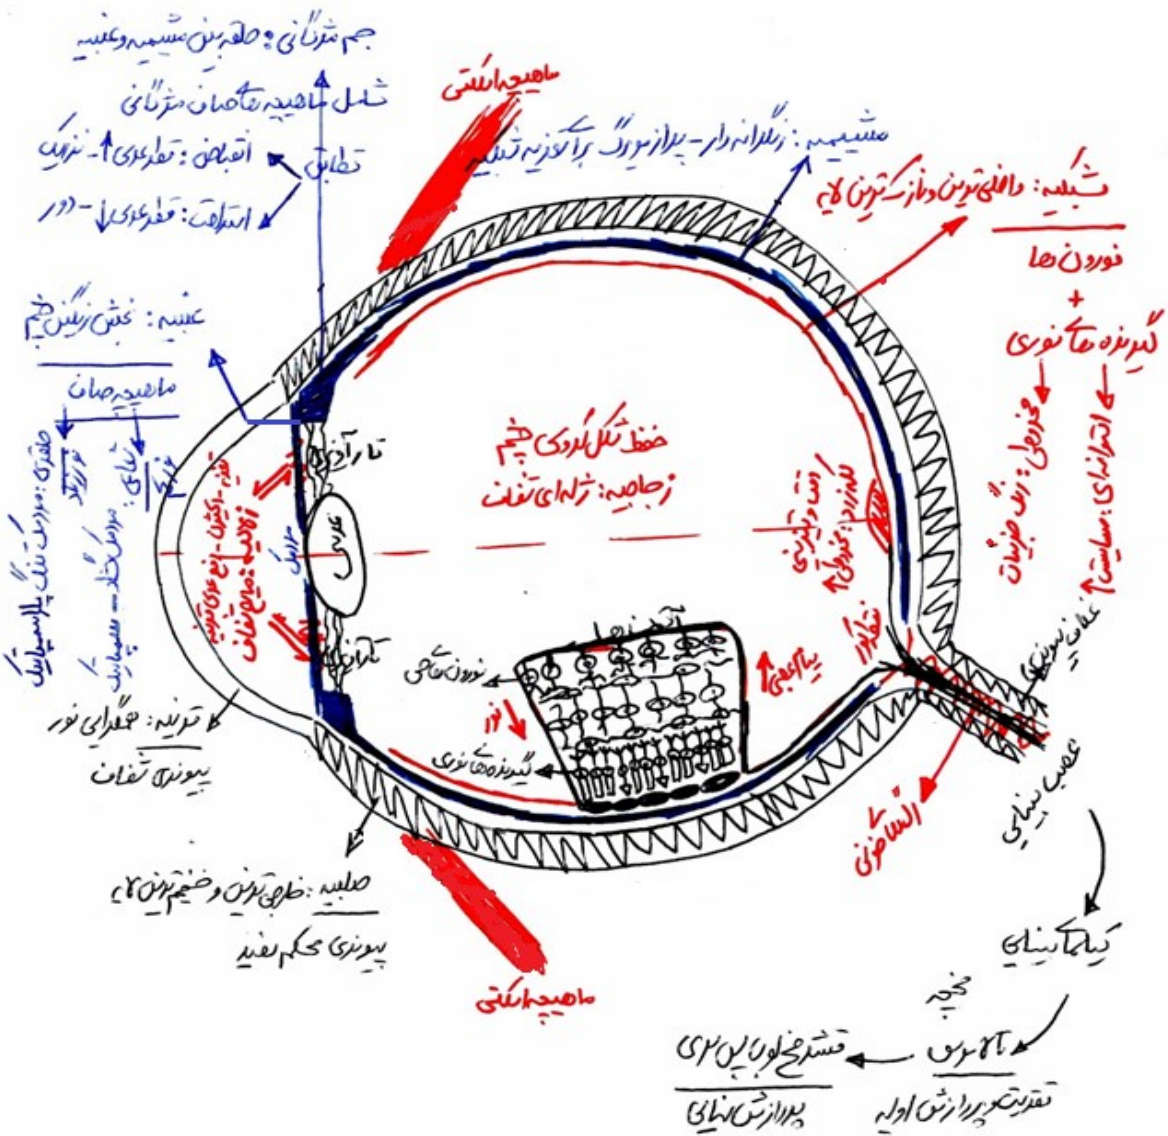 جسم مژگانی: حلقه بین مشیمیه و عنبیه
شامل ماهیچه های صاف مژگانی
تطابق
انقباض: قطر عدسی ↑ - نزدیک
استراحت: قطر عدسی ↓ - دور
ماهیچه اسکلتی
مشیمیه: رنگدانه دار - پر از مویرگ برای تغذیه شبکیه
شبکیه: داخلی ترین و نازک ترین لایه
نورون ها
+
گیرنده های نوری
مخروطی: رنگ جزییات
استوانه ای: حساسیت ↑
عنبیه: بخش رنگین چشم
ماهیچه صاف
حلقوی: مردمک تنگ پاراسمپاتیک
نور زیاد
شعاعی: مردمک گشاد - سمپاتیک
نور کم
تار آویزی
عدسی
مردمک
زلالیه: مایع شفاف
حفظ شکل کروی چشم
زجاجیه: ژله ای شفاف
لکه زرد: مخروطی ↑
دقت و تیزبینی
نقطه کور
تار آویزی
نورون حسی
نور
گیرنده های نوری
پیام عصبی
قرنیه: همگرایی نور
پیوندی شفاف
صلبیه: خارجی ترین و ضخیم ترین لایه
پیوندی محکم سفید
ماهیچه اسکلتی
غلاف پیوندی
عصب بینایی
کیاسمای بینایی
مخچه
تالاموس
تقویت و پردازش اولیه
قشر مخ لوب پس سری
پردازش نهایی